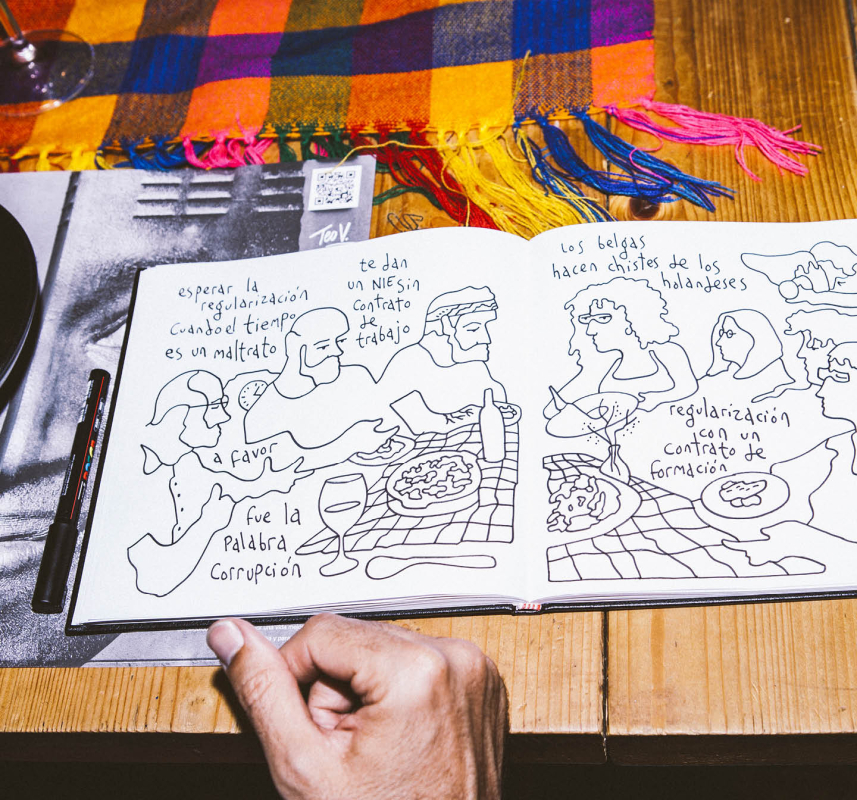 Too V.
esperar la
regularización
cuando el tiempo
es un maltrato
te dan
un NIE sin
contrato
de
trabajo
a favor
fue la
palabra
corrupción
los belgas
hacen chistes de los
holandeses
regularización
con un
contrato de
formación